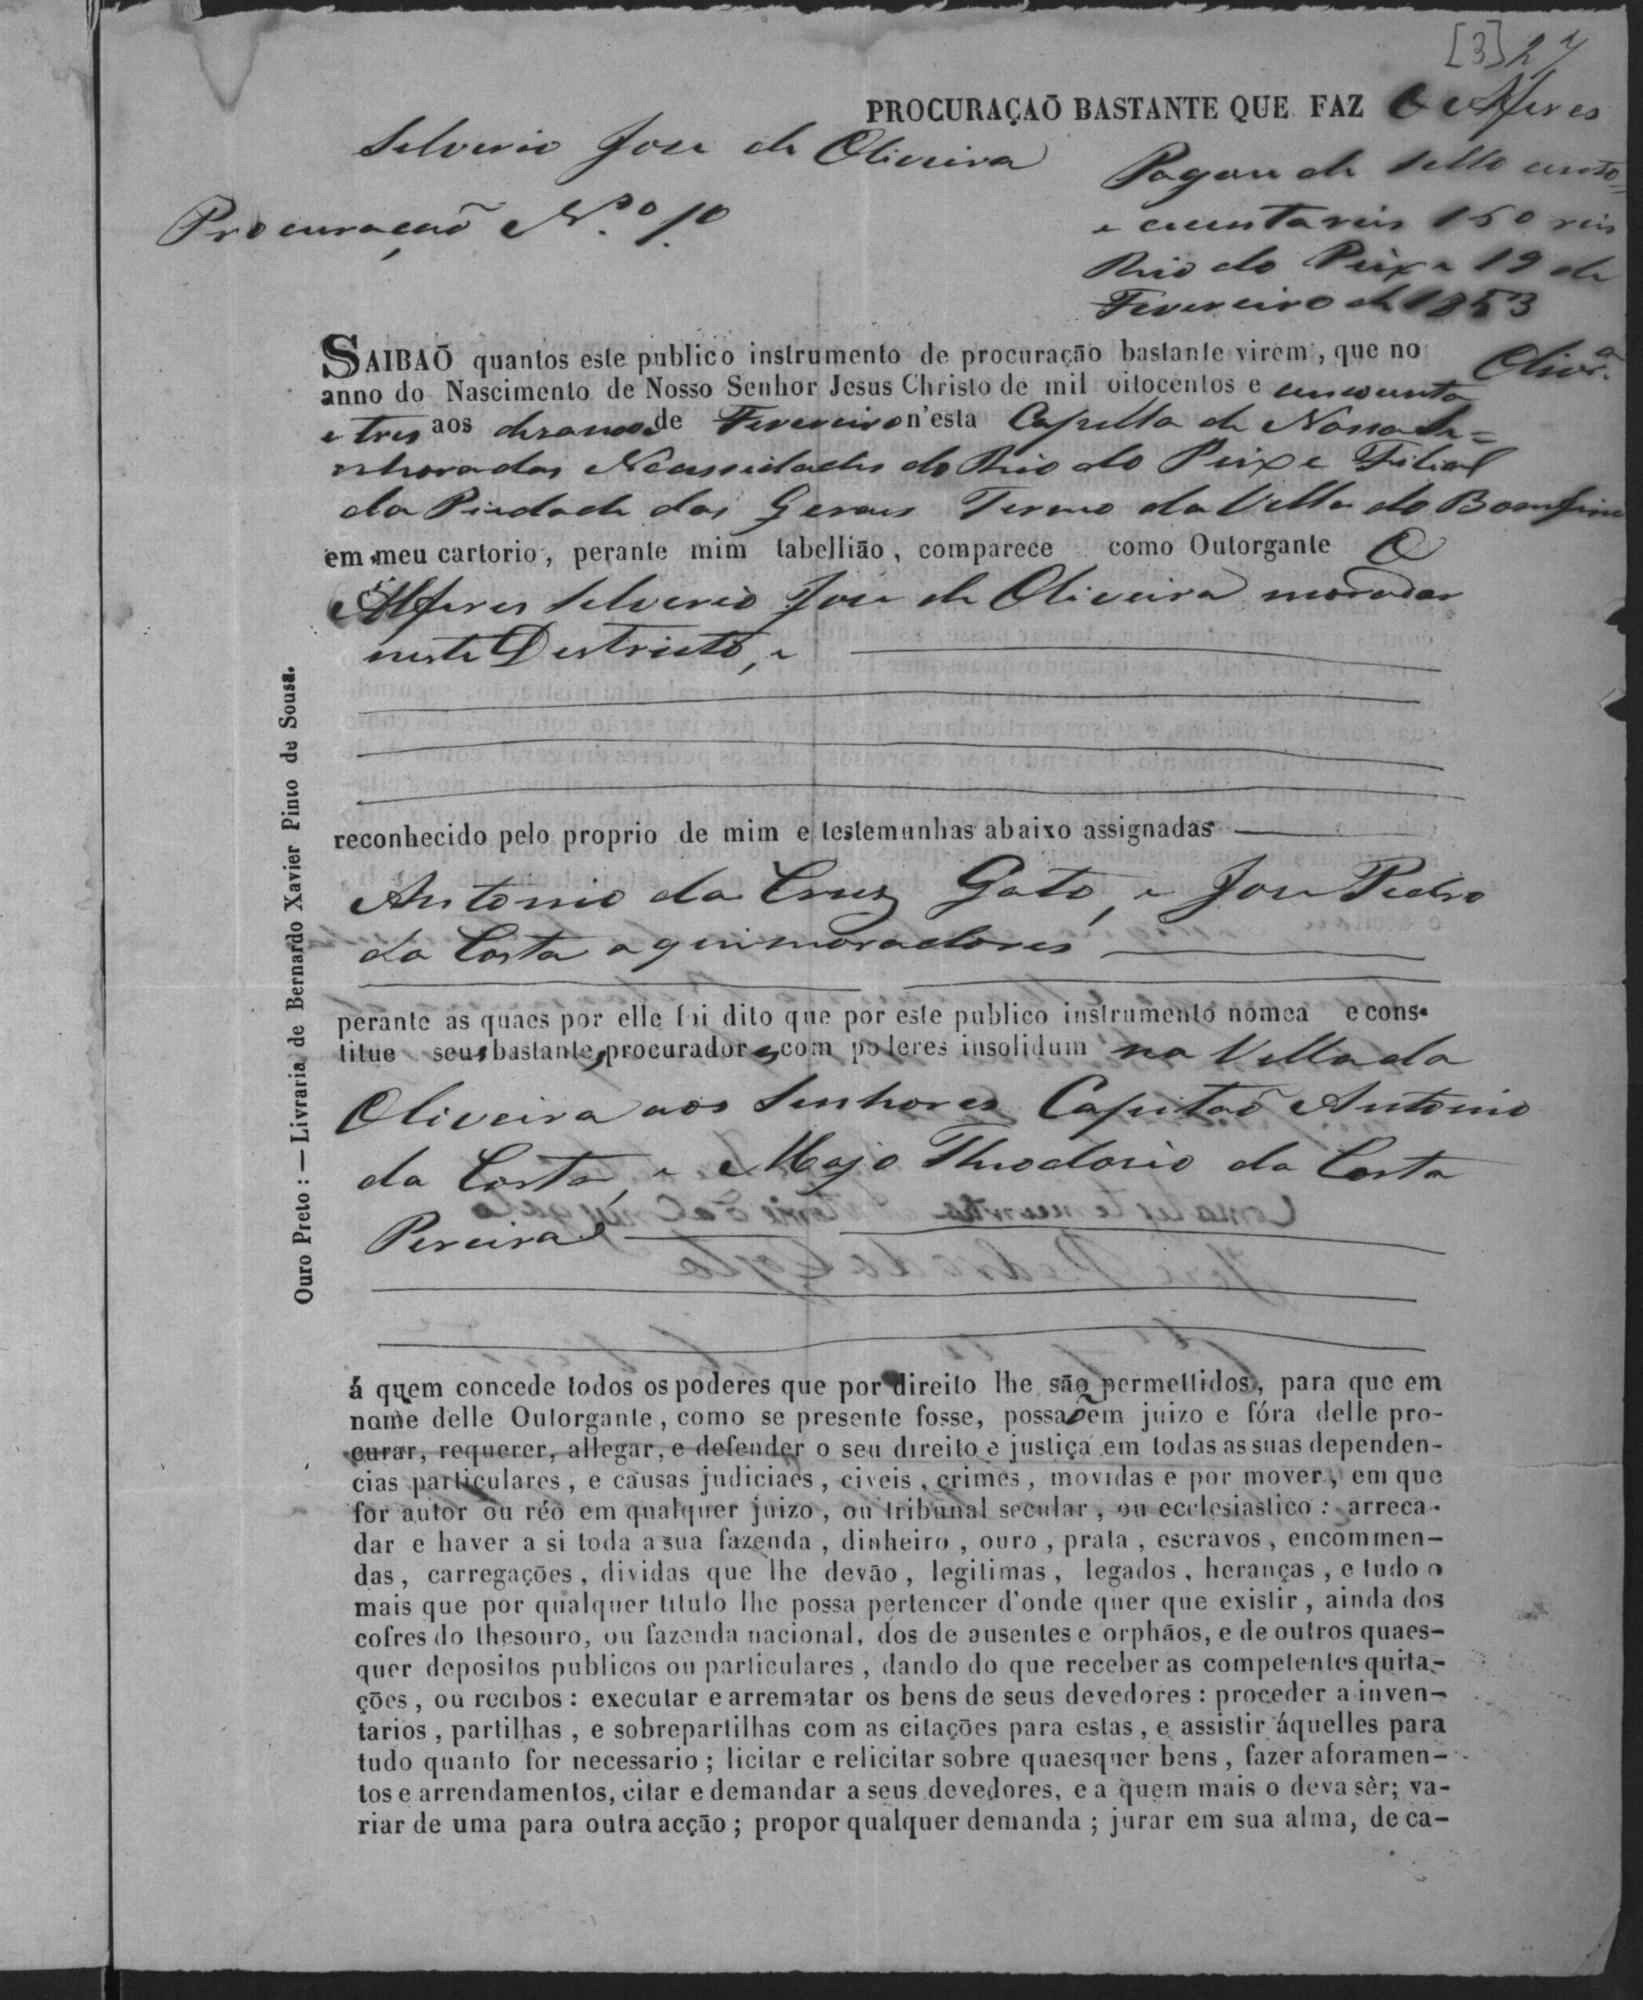 [3] 27
PROCURAÇAÕ BASTANTE QUE FAZ O Alferes
Silverio Jose de Oliveira
Procuraçaõ N.º 1º
Pagou de Sello cento
e cincoenta reis 150 reis
Rio do Peixe 19 de
Fevereiro de 1853
Olivrª.
SAIBAÕ quantos este publico instrumento de procuração bastante virem, que no
anno do Nascimento de Nosso Senhor Jesus Christo de mil oitocentos e cincoenta
e tres aos desanove de Fevereiro n'esta Capella de Nossa Se=
nhora das Necessidades do Rio do Peixe Filial
da Piedade dos Geraes Termo da Villa do Boomfim
em meu cartorio, perante mim tabellião, comparece como Outorgante O
Alferes Silverio Jose de Oliveira morador
neste Destricto, e
reconhecido pelo proprio de mim e testemunhas abaixo assignadas
Antonio da Cruz Gato, e Jose Pedro
da Costa aqui moradores
perante as quaes por elle foi dito que por este publico instrumento nomea e cons-
titue seus bastantes procuradores com poderes insolidum na Villa da
Oliveira aos Senhores Capitaõ Antonio
da Costa, e Majo Theodorio da Costa
Pereira
á quem concede todos os poderes que por direito lhe são permettidos, para que em
nome delle Outorgante, como se presente fosse, possaõ em juizo e fóra delle pro-
curar, requerer, allegar, e defender o seu direito e justiça em todas as suas dependen-
cias particulares, e causas judiciaes, civeis, crimes, movidas e por mover, em que
for autor ou réo em qualquer juizo, ou tribunal secular, ou ecclesiastico: arreca-
dar e haver a si toda a sua fazenda, dinheiro, ouro, prata, escravos, encommen-
das, carregações, dividas que lhe devão, legitimas, legados, heranças, e tudo o
mais que por qualquer titulo lhe possa pertencer d'onde quer que existir, ainda dos
cofres do thesouro, ou fazenda nacional, dos de ausentes e orphãos, e de outros quaes-
quer depositos publicos ou particulares, dando do que receber as competentes quita-
ções, ou recibos: executar e arrematar os bens de seus devedores: proceder a inven-
tarios, partilhas, e sobrepartilhas com as citações para estas, e assistir áquelles para
tudo quanto for necessario; licitar e relicitar sobre quaesquer bens, fazer aforamen-
tos e arrendamentos, citar e demandar a seus devedores, e a quem mais o deva sêr; va-
riar de uma para outra acção; propor qualquer demanda; jurar em sua alma, de ca-
Ouro Preto: — Livraria de Bernardo Xavier Pinto de Sousa.